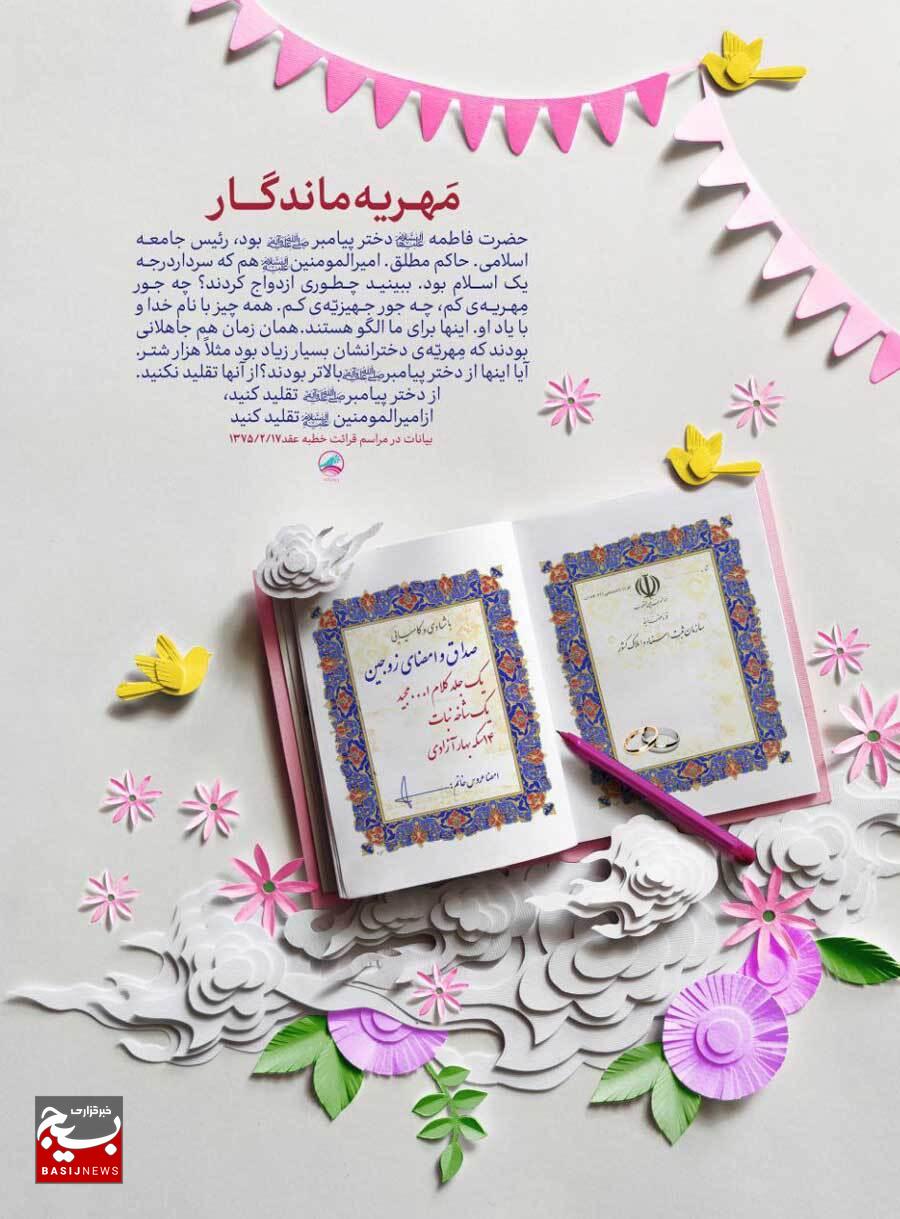 مَهریه ماندگار
حضرت فاطمه علیهاالسلام دختر پیامبر صلی‌الله‌علیه‌وآله بود، رئیس جامعه
اسلامی. حاکم مطلق. امیرالمومنین علیه‌السلام هم که سردار درجه
یک اسلام بود. ببینید چطوری ازدواج کردند؟ چه جور
مِهریه‌ی کم، چه جور جهیزیّه‌ی کم. همه چیز با نام خدا و
با یاد او. اینها برای ما الگو هستند. همان زمان هم جاهلانی
بودند که مِهریّه‌ی دخترانشان بسیار زیاد بود مثلاً هزار شتر.
آیا اینها از دختر پیامبر صلی‌الله‌علیه‌وآله بالاتر بودند؟ از آنها تقلید نکنید.
از دختر پیامبر صلی‌الله‌علیه‌وآله تقلید کنید،
از امیرالمومنین علیه‌السلام تقلید کنید
بیانات در مراسم قرائت خطبه عقد ۱۳۷۵/۲/۱۷
سازمان ثبت اسناد و املاک کشور
با شادی و کامیابی
صداق و امضای زوجین
یک جلد کلام ا... مجید
یک شاخه نبات
۱۴ سکه بهار آزادی
امضا عروس خانم:
خبرگزاری
بسیج
BASIJNEWS